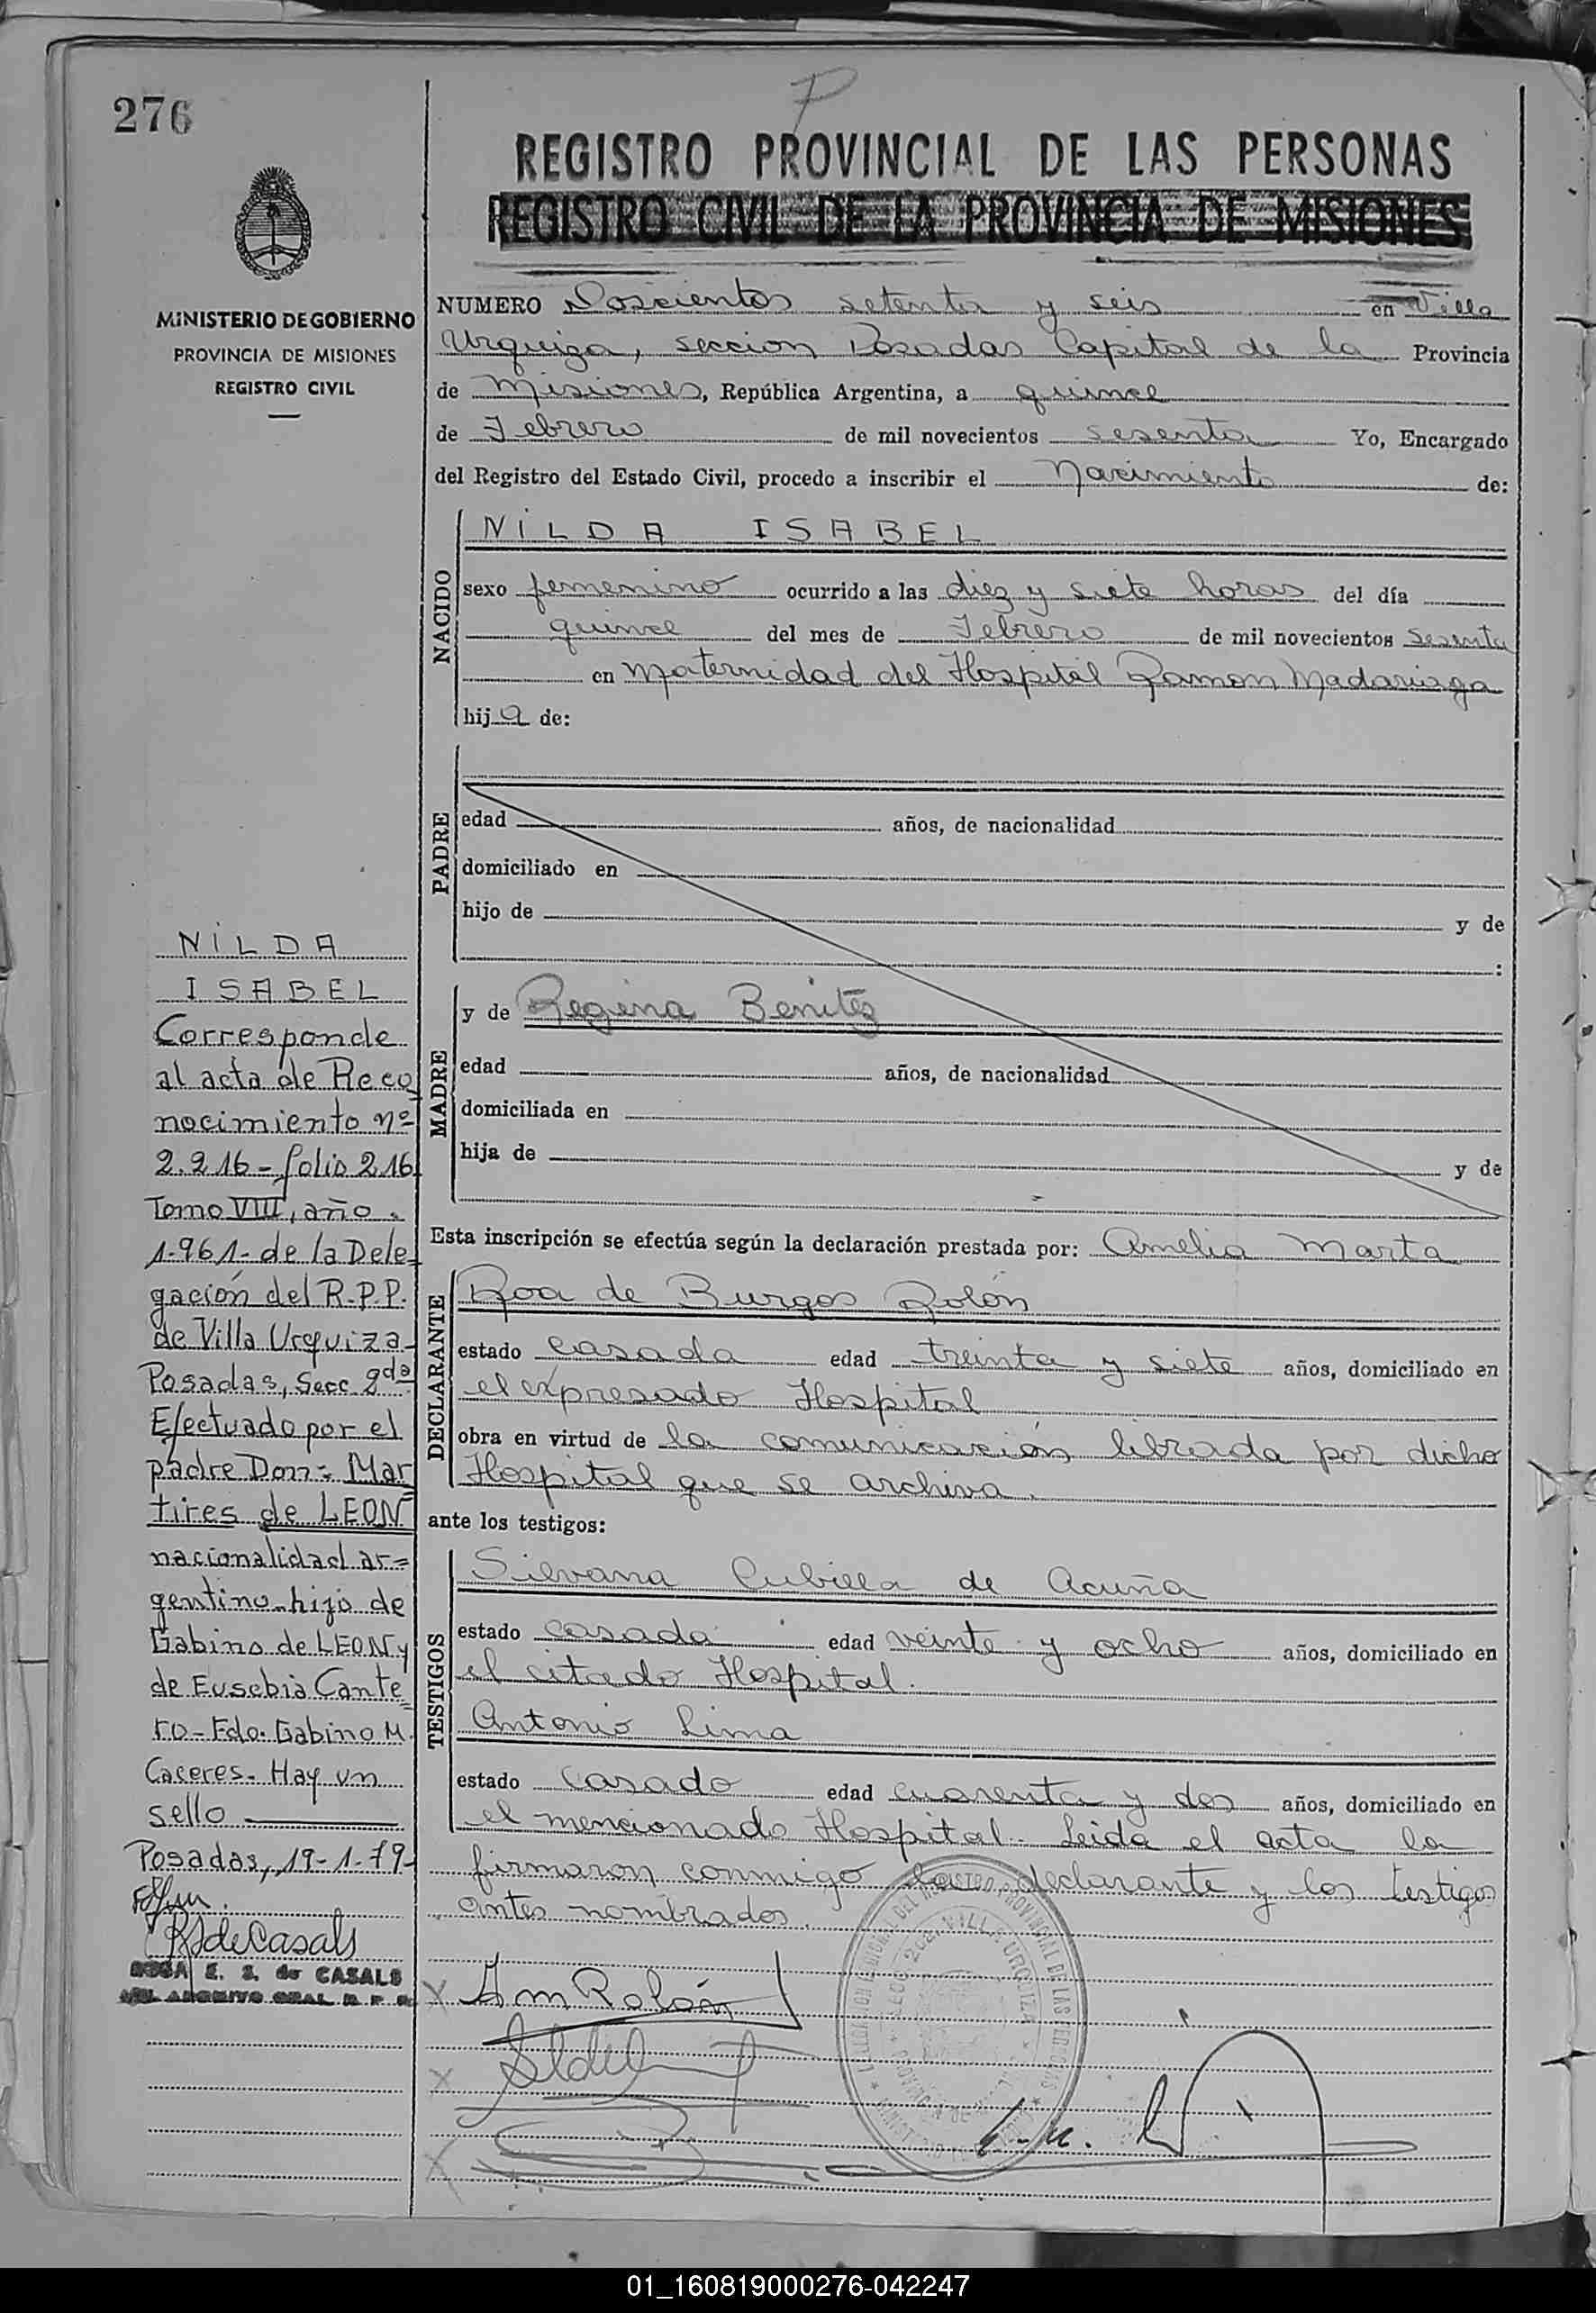 276
P
REGISTRO PROVINCIAL DE LAS PERSONAS
REGISTRO CIVIL DE LA PROVINCIA DE MISIONES
MINISTERIO DE GOBIERNO
PROVINCIA DE MISIONES
REGISTRO CIVIL
NUMERO Doscientos setenta y seis en Villa
Urquiza, seccion Posadas Capital de la Provincia
de Misiones, República Argentina, a quince
de Febrero de mil novecientos sesenta Yo, Encargado
del Registro del Estado Civil, procedo a inscribir el Nacimiento de:
NACIDO
NILDA ISABEL
sexo femenino ocurrido a las diez y siete horas del día
quince del mes de Febrero de mil novecientos sesenta
en Maternidad del Hospital Ramon Madariaga
hija de:
PADRE
edad años, de nacionalidad
domiciliado en
hijo de y de
:
MADRE
y de Regina Benitez
edad años, de nacionalidad
domiciliada en
hija de y de
Esta inscripción se efectúa según la declaración prestada por: Amelia Marta
DECLARANTE
Roa de Burgos Rolón
estado casada edad treinta y siete años, domiciliado en
el expresado Hospital
obra en virtud de la comunicación librada por dicho
Hospital que se archiva.
ante los testigos:
TESTIGOS
Silvana Cubilla de Acuña
estado casada edad veinte y ocho años, domiciliado en
el citado Hospital.
Antonio Lima
estado casado edad cuarenta y dos años, domiciliado en
el mencionado Hospital. Leida el acta la
firmaron conmigo la declarante y los testigos
antes nombrados.
A m Rolón
NILDA
ISABEL
Corresponde
al acta de Reco
nocimiento nº
2.216 - folio 216
Tomo VIII, año
1.961- de la Dele
gación del R.P.P.
de Villa Urquiza
Posadas, Secc 2da
Efectuado por el
padre Don: Mar
tires de LEON
nacionalidad ar=
gentino hijo de
Gabino de LEON y
de Eusebia Cante
ro - Fdo. Gabino M.
Caceres. Hay un
sello
Posadas, 19-1-79
RSdeCasals
ROSA E. S. de CASALS
01_160819000276-042247